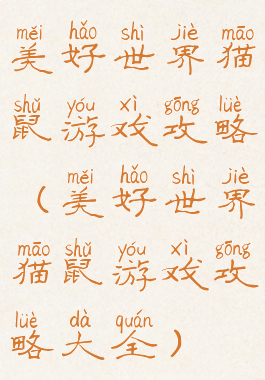 měi hǎo shì jiè māo
美好世界猫
shǔ yóu xì gōng lüè
鼠游戏攻略
měi hǎo shì jiè
（美好世界
māo shǔ yóu xì gōng
猫鼠游戏攻
lüè dà quán
略大全）